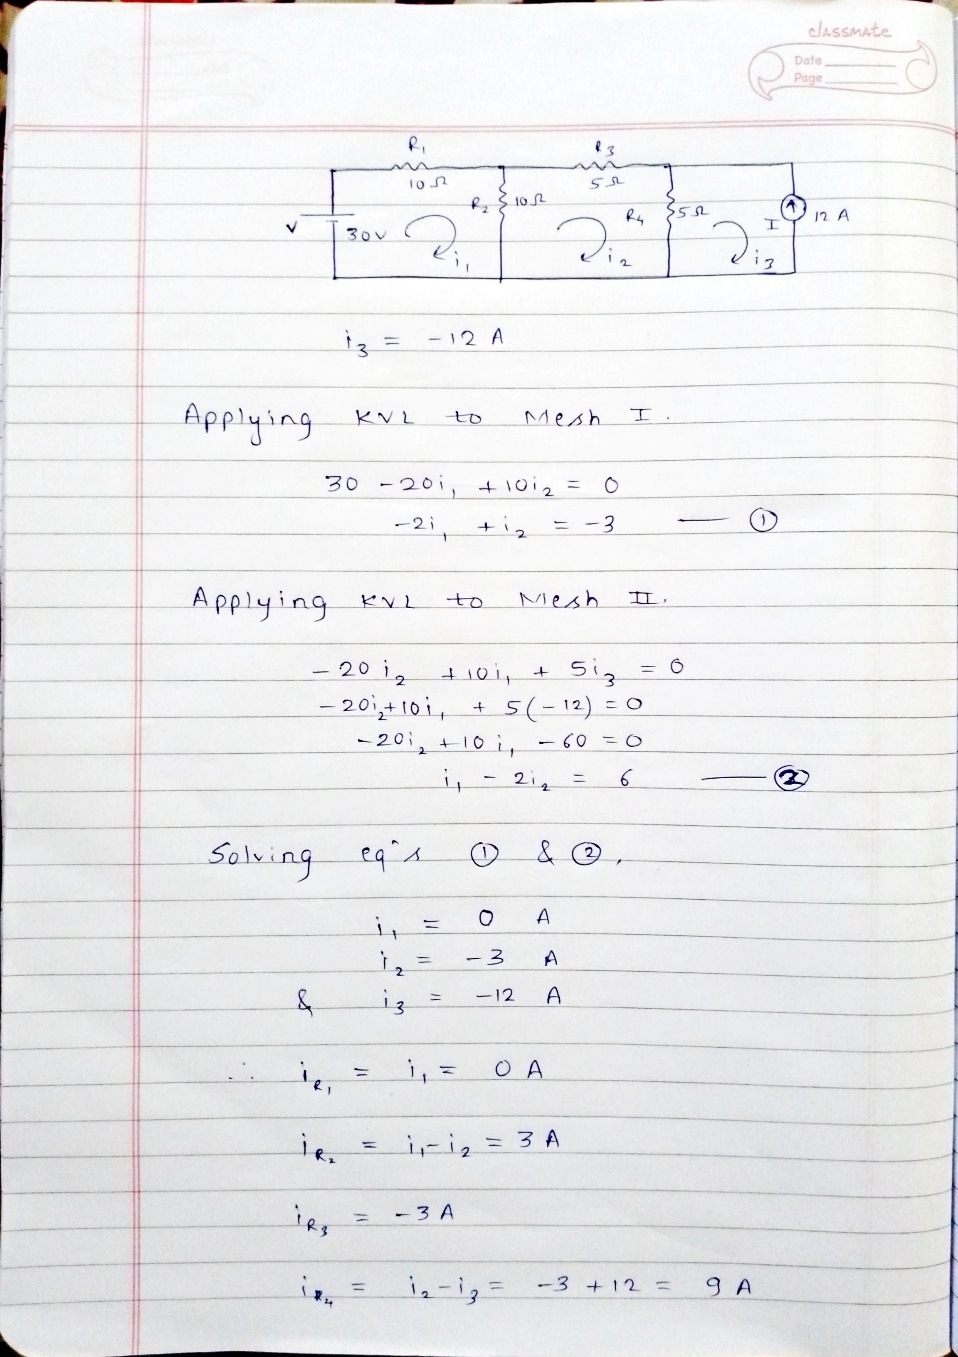 classmate
Date
Page
R₁
R₃
10Ω
5Ω
R₂ 10Ω
R₄ 5Ω
I 12 A
V 30V
i₁
i₂
i₃
i₃ = -12 A
Applying KVL to Mesh I.
30 - 20i₁ + 10i₂ = 0
-2i₁ + i₂ = -3 — ①
Applying KVL to Mesh II.
-20i₂ + 10i₁ + 5i₃ = 0
-20i₂ + 10i₁ + 5(-12) = 0
-20i₂ + 10i₁ - 60 = 0
i₁ - 2i₂ = 6 — ②
Solving eqⁿs ① & ②,
i₁ = 0 A
i₂ = -3 A
& i₃ = -12 A
∴ i_R₁ = i₁ = 0 A
i_R₂ = i₁ - i₂ = 3 A
i_R₃ = -3 A
i_R₄ = i₂ - i₃ = -3 + 12 = 9 A